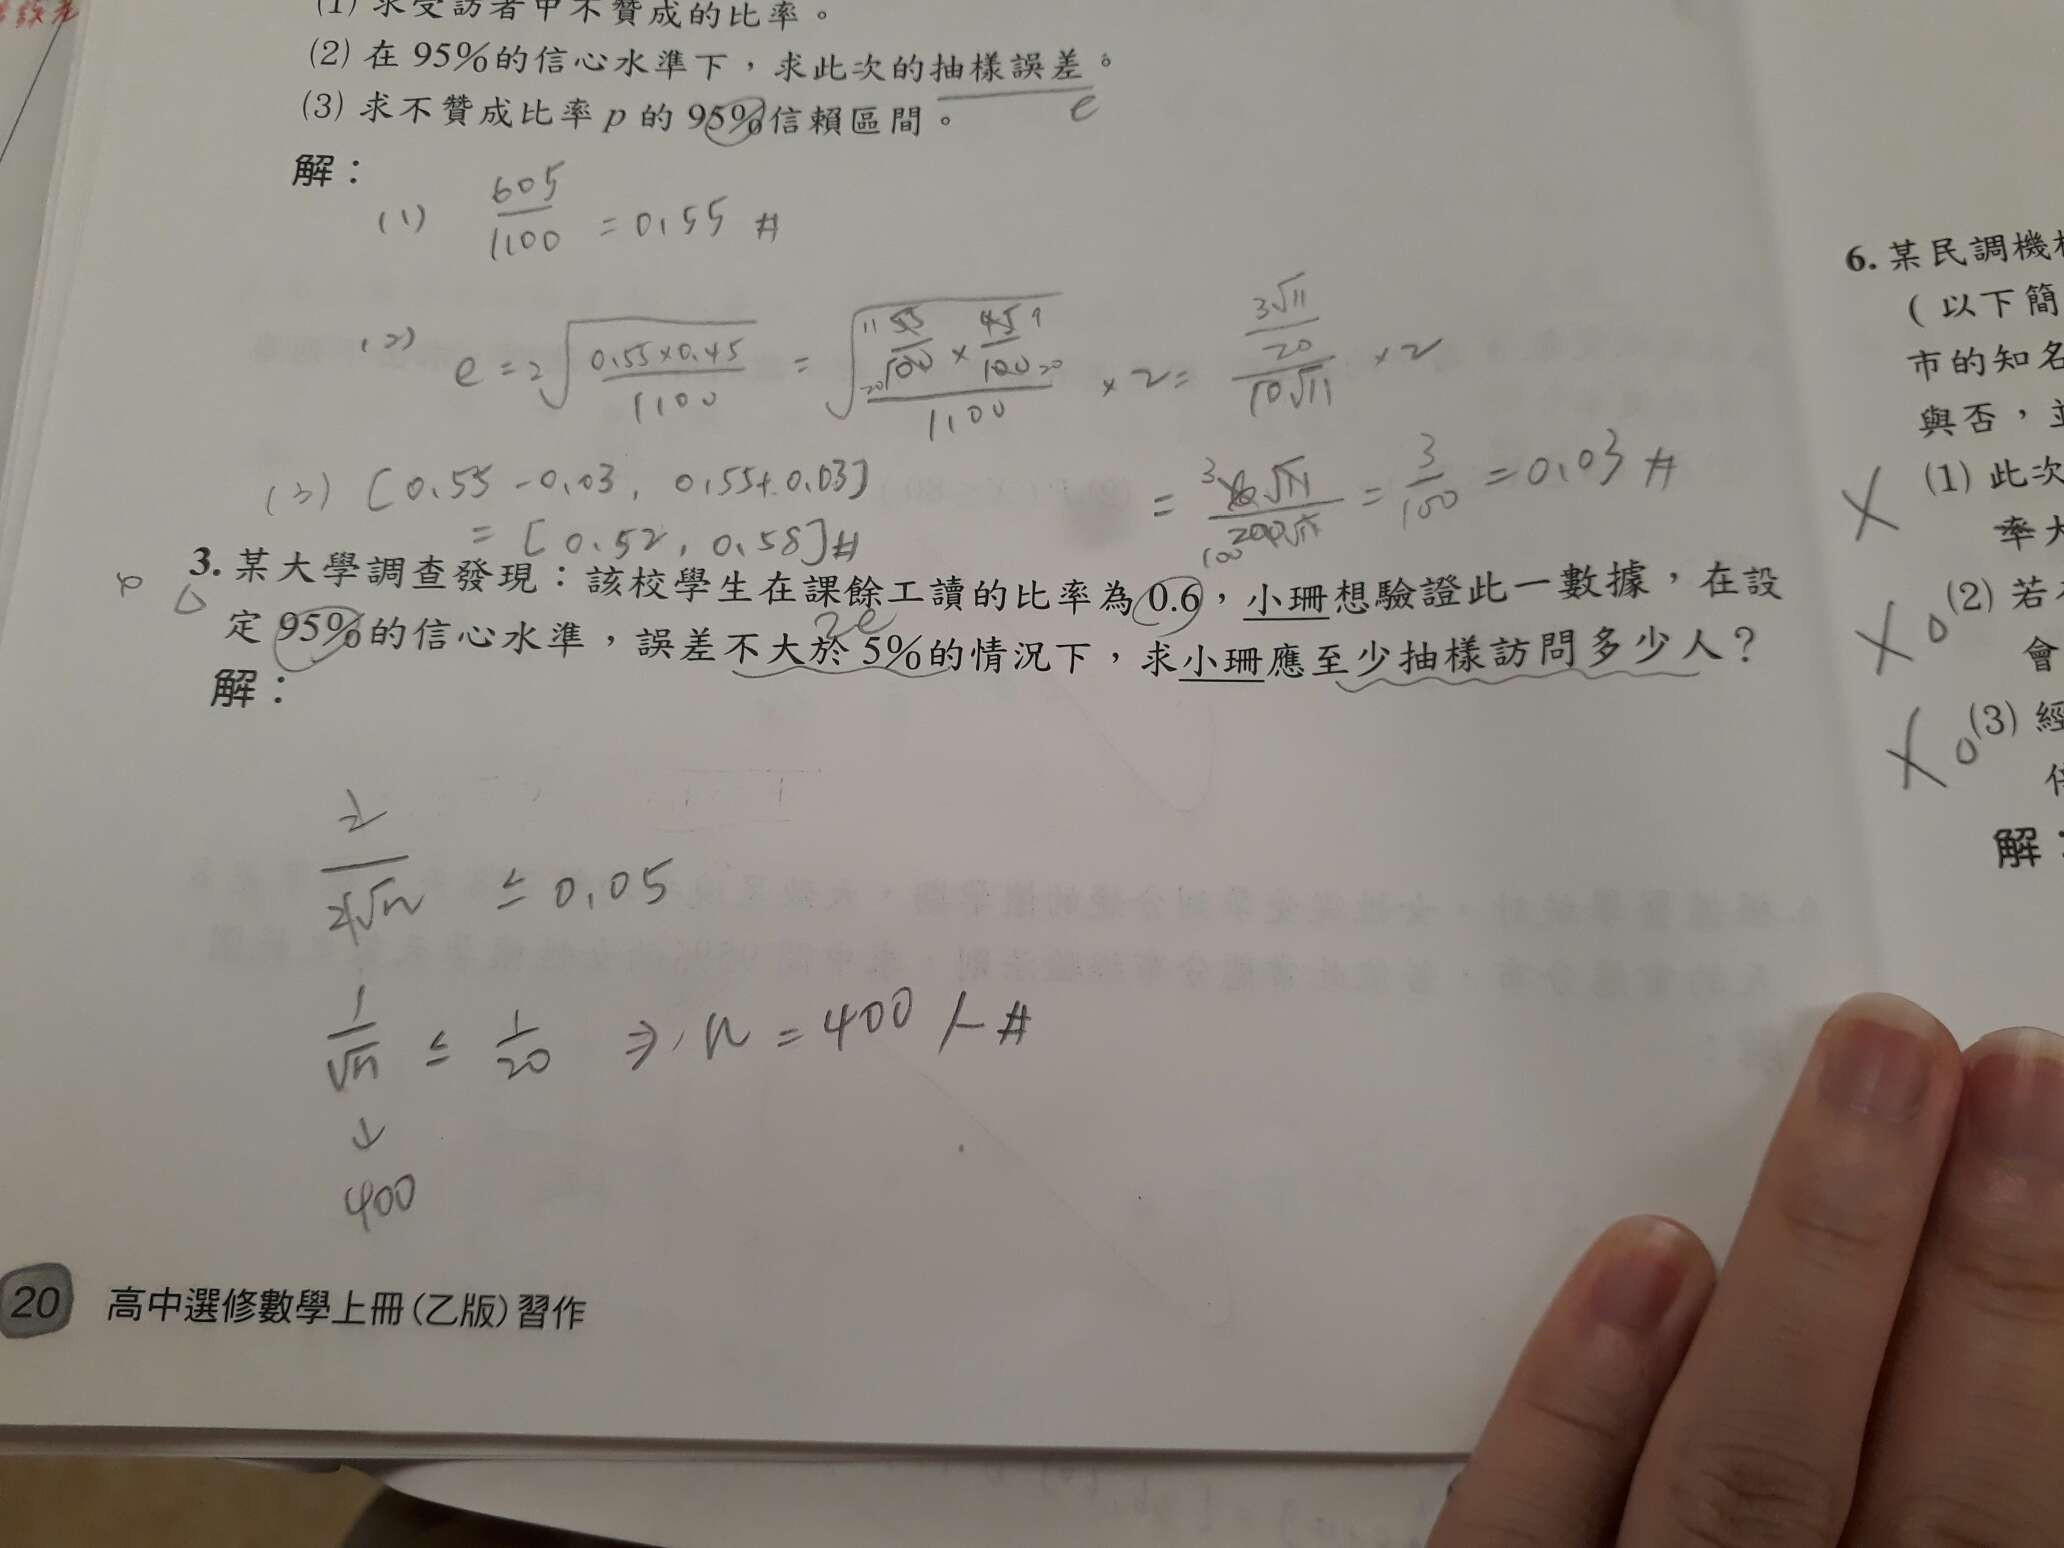 (1) 求受訪者中不贊成的比率。
(2) 在 95%的信心水準下，求此次的抽樣誤差。
e
(3) 求不贊成比率 p 的 95%信賴區間。
解：
(1) 605/1100 = 0.55 #
(2) e = 2√(0.55×0.45/1100) = √((55/100 × 45/100)/1100) × 2 = (3√11/20)/(10√11) × 2
11 9
20 20
= 6√11/200√11 = 3/100 = 0.03 #
3
100
(3) [0.55 - 0.03, 0.55 + 0.03]
= [0.52, 0.58] #
3. 某大學調查發現：該校學生在課餘工讀的比率為 0.6，小珊想驗證此一數據，在設
2e
定 95%的信心水準，誤差不大於 5%的情況下，求小珊應至少抽樣訪問多少人？
解：
2/2√n ≤ 0.05
1/√n ≤ 1/20 ⇒ n = 400 人 #
↓
400
20 高中選修數學上冊(乙版)習作
6. 某民調機
(以下簡
市的知名
與否，並
(1) 此次
率大
(2) 若
會
(3) 經
解：